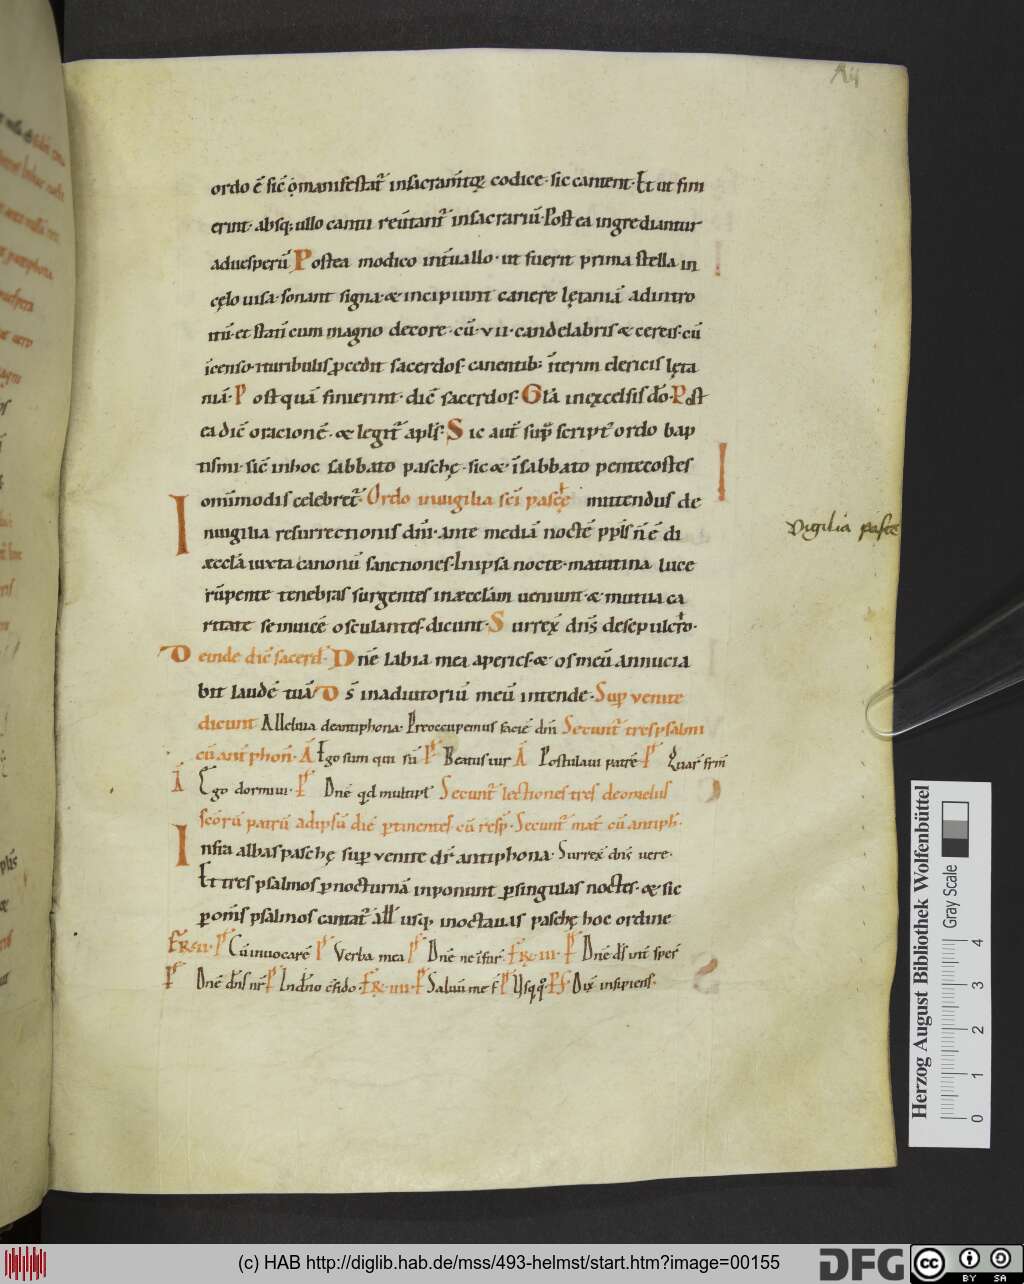 ordo ē sic̄ q̊manifestat᷑ insacram̄toꝝ codice· sic canent· Et ut fini
erint· absq; ullo cantu reūtant᷑ insacrariū· Post ea ingrediantur
aduesperū Postea modico int̄uallo· ut fuerit prima stella in
cęlo uisa· sonant signa· & incipiunt canere lętaniā adintro
itū· et statī cum magno decore· cū· VII· candelabris & cereis· cū
īcenso· ituribulis ꝓcedit sacerdos· canentib; īterim clericis lęta
niā· Postquā finierint· dic̄ sacerdos· Gl̄a inexcelsis dō· Post
ea dic̄ oracionē· & legit᷑ apl̄s· Sic aut̄ sup̄ script᷑ ordo bap
tismi· sic̄ inhoc sabbato paschę· sic & īsabbato pentecostes
om̄imodis celebret᷑· Ordo inuigilia sc̄i pascę mittendus de
Inuigilia resurrectionis dn̄i· ante mediā noctē ppl̄s n̄ ē di
Vigilia pasce
æccl̄a iuxta canonū sanctiones· Inipsa nocte· matutina luce
rūpente tenebras surgentes inæccl̄am ueniunt· & mutua ca
ritate seinuicē osculantes· dicunt· Surrex̄ dn̄s desepulchro·
Deinde dic̄ sacerd̄· Dn̄e labia mea aperies· & os meū annucia
bit laudē tuā Ds̄ inadiutoriū meū intende· Sup̄ uenite
dicunt Alleluia deantiphona· Preoccupemus faciē dn̄i Secunt᷑ tres psalmi
cū antiphon̄· A Ego sum qui sū Ps Beatus uir A Postulaui patrē Ps Quar̄ frm̄
A Ego dormiui· Ps Dn̄e qd multipl̄ Secunt᷑ lectiones tres deomelus
sc̄orū patrū adipsū diē ꝑtinentes· cū resp̄· Secunt᷑ mat̄ cū antiph̄·
Infra albas paschę sup̄ uenite dr̄ antiphona· Surrex̄ dn̄s uere·
Et tres psalmos ꝓnocturnā inponunt ꝑsingulas noctes· & sic
ꝑ om̄s psalmos cantat᷑ all̄ usq; inoctauas paschę hoc ordine
Fr̄· II· Ps Cū inuocarē Ps Verba mea Ps Dn̄e ne ī fur̄· Fr̄· III· Ps Dn̄e ds̄ int̄ sperī
Ps Dn̄e dn̄s nr̄ Ps Indn̄o cf̄ido· Fr̄· IIII· Ps Saluū me f̄ Ps Usq;q̊· Ps Dix̄ insipiens·
Herzog August Bibliothek Wolfenbüttel
Gray Scale
0 1 2 3 4
(c) HAB http://diglib.hab.de/mss/493-helmst/start.htm?image=00155
DFG
cc BY SA